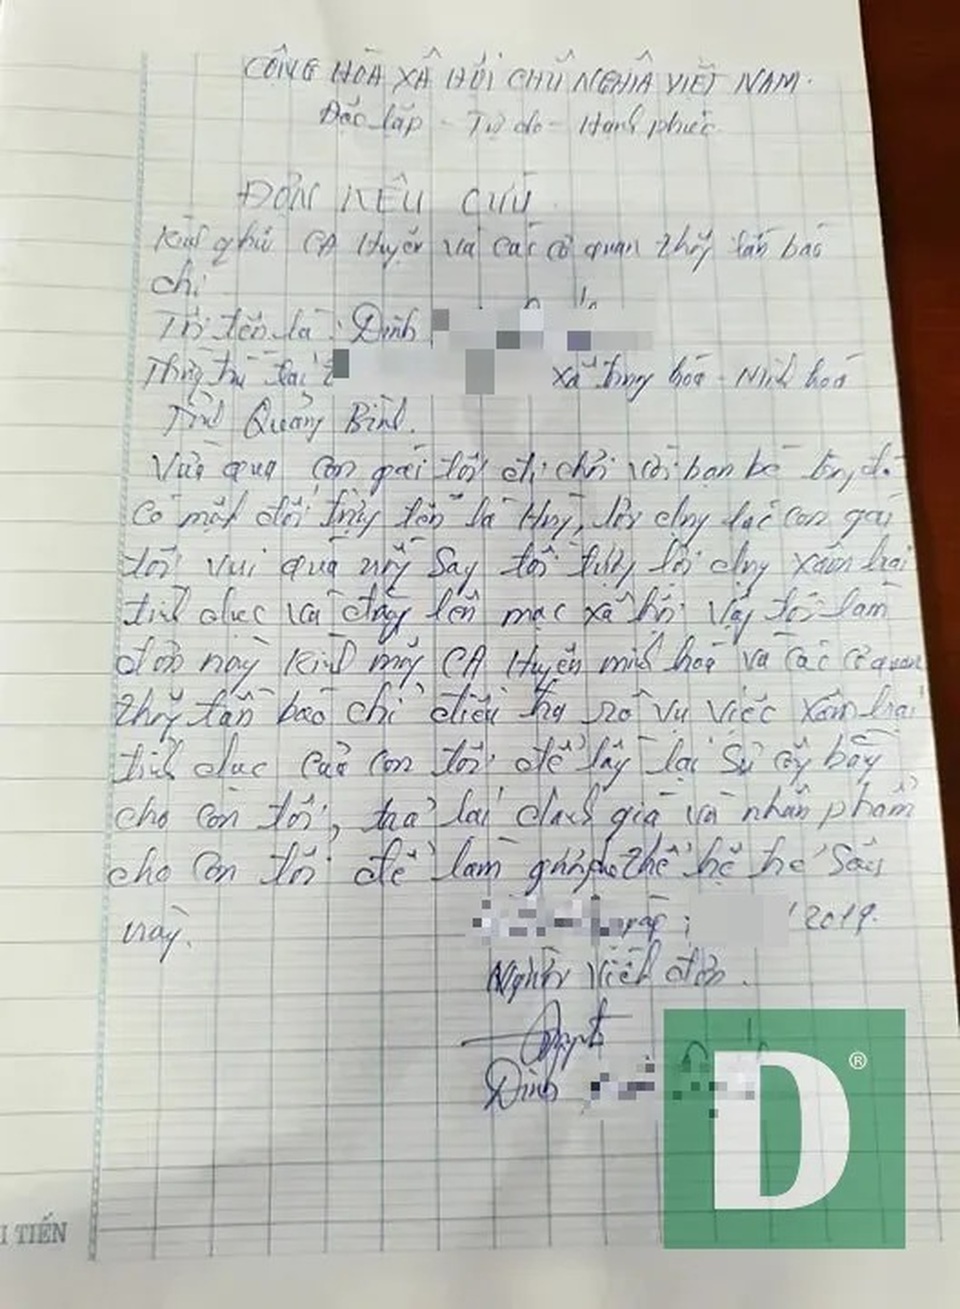 CÔNG HÒA XÃ HỘI CHŨ NGHĨA VIỆT NAM.
Đốc lập - Tự do - Hạnh phúc
ĐƠN KÊU CỨU
Kính gữi CA Huyện và các cơ quan thông tấn báo
chí
Tôi tên là : Đinh
Thường trú tại xã trung hoá - Minh hoá
Tỉnh Quảng Bình.
Vừa qua con gái tôi đi chơi với bạn bè trong đó
có một đối tượng tên là Huy, lợi dụng lúc con gái
tôi vui quá uống say đối tượng lợi dụng xâm hại
tình dục và đăng lên mạc xã hội vậy tôi làm
đơn này kính mong CA Huyện minh hoá và các cơ quan
thông tấn báo chí điều tra rõ vụ việc xâm hại
tình dục của con tôi để lấy lại sự công bằng
cho con tôi, trả lại danh giá và nhân phẩm
cho con tôi để làm gương cho thế hệ trẻ sau
này.
2019.
Người viết đơn.
Đinh
D®
I TIẾN